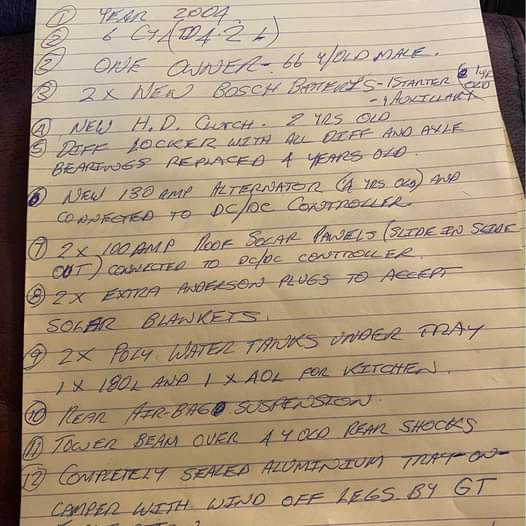 ① YEAR 2004.
② 6 CYL (TD 4.2 L)
② ONE OWNER - 66 Y/OLD MALE.
③ 2 X NEW BOSCH BATTERYS - 1 STARTER 1 YR OLD
- 1 AUXILLARY
④ NEW H.D. CLUTCH. 2 YRS OLD
⑤ DIFF LOCKER WITH ALL DIFF AND AXLE
BEARINGS REPLACED 4 YEARS OLD.
⑥ NEW 130 AMP ALTERNATOR (4 YRS OLD) AND
CONNECTED TO DC/DC CONTROLLER
⑦ 2 X 100 AMP ROOF SOLAR PANELS (SLIDE IN SLIDE
OUT) CONNECTED TO DC/DC CONTROLLER.
⑧ 2 X EXTRA ANDERSON PLUGS TO ACCEPT
SOLAR BLANKETS.
⑨ 2 X POLY. WATER TANKS UNDER TRAY
1 X 180L AND 1 X 40L FOR KITCHEN.
⑩ REAR AIR-BAG SUSPENSION.
⑪ TOWER BEAM OVER 4 Y OLD REAR SHOCKS
⑫ COMPLETELY SEALED ALUMINIUM TRAY-ON-
CAMPER WITH WIND OFF LEGS. BY GT